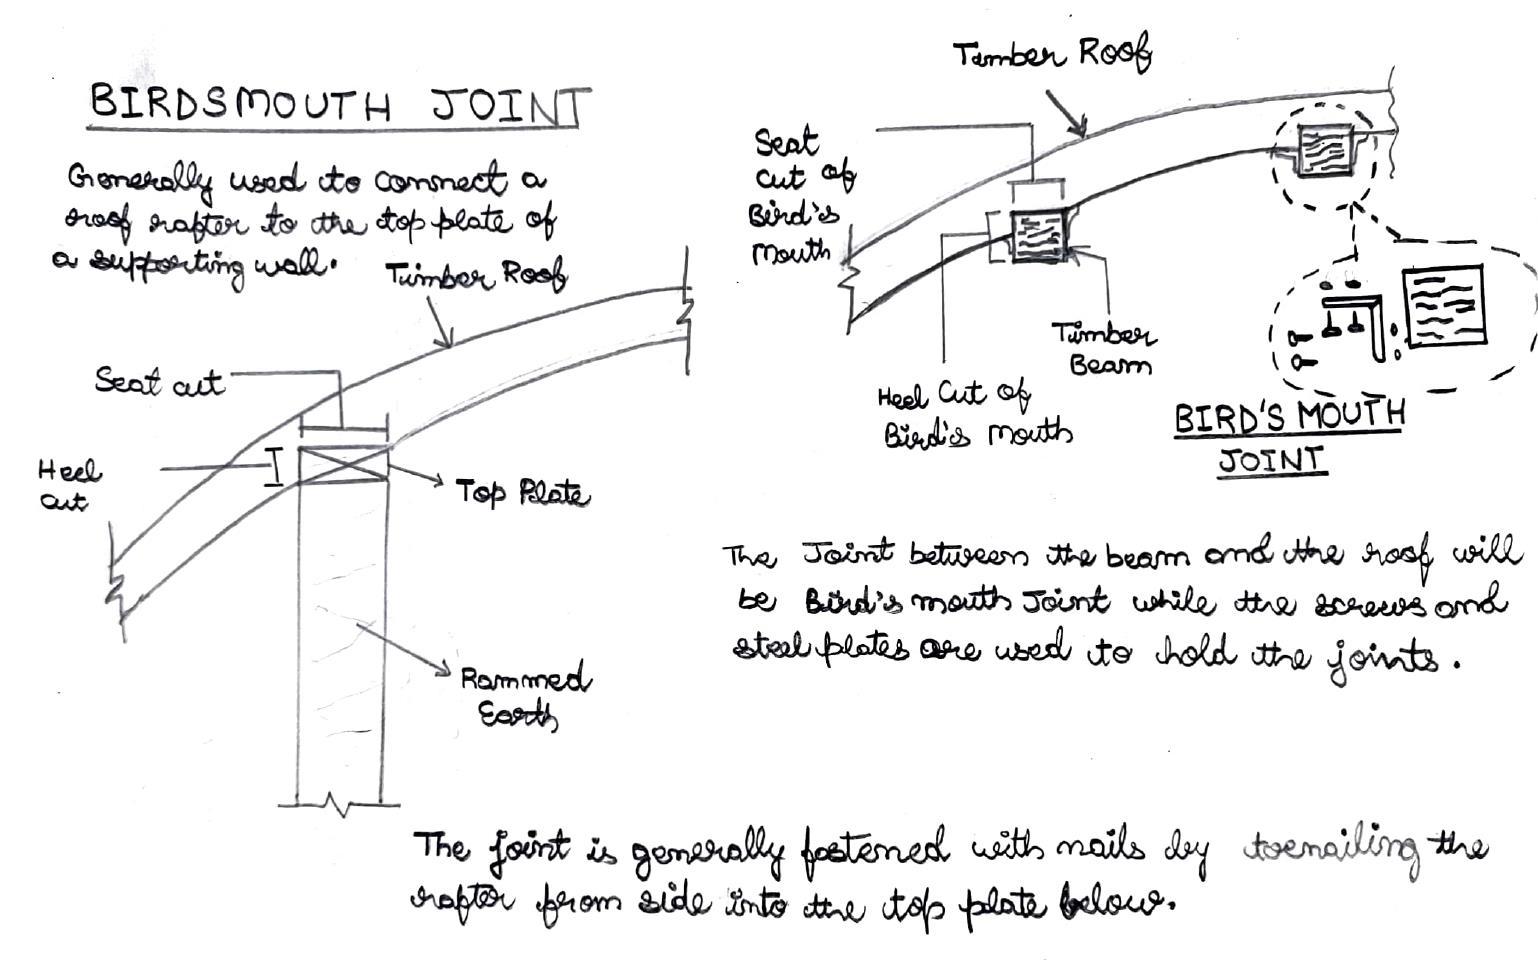 BIRDSMOUTH JOINT
Generally used to connect a
roof rafter to the top plate of
a supporting wall.
Timber Roof
Seat cut
Heel
cut
Top Plate
Rammed
Earth
Timber Roof
Seat
cut of
Bird's
Mouth
Timber
Beam
Heel Cut of
Bird's Mouth
BIRD'S MOUTH
JOINT
The Joint between the beam and the roof will
be Bird's mouth Joint while the screws and
steel plates are used to hold the joints.
The joint is generally fastened with nails by toenailing the
rafter from side into the top plate below.